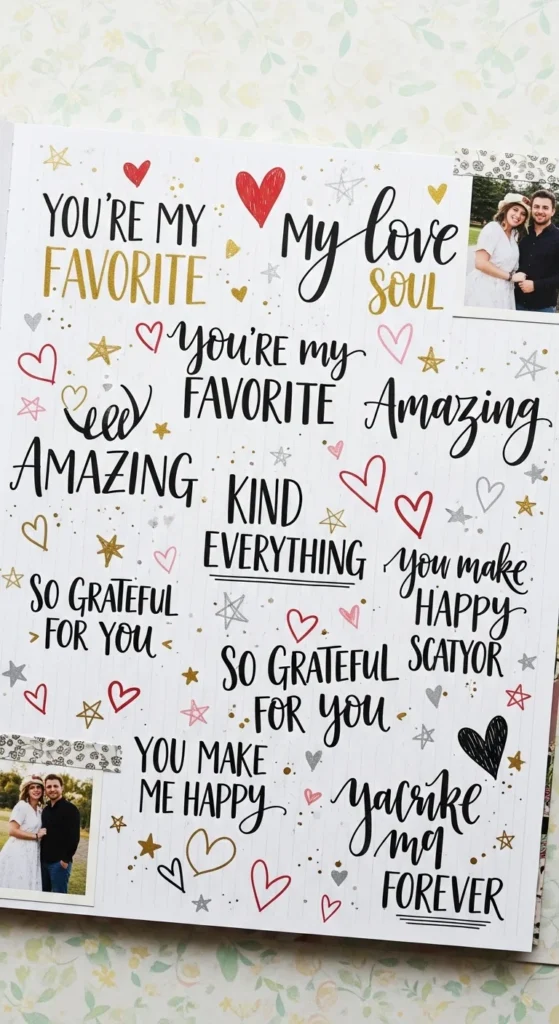 YOU'RE MY
FAVORITE
My love
SOUL
you're my
FAVORITE
Amazing
AMAZING
KIND
EVERYTHING
you make
HAPPY
SCATYOR
SO GRATEFUL
FOR YOU
SO GRATEFUL
FOR YOU
YOU MAKE
ME HAPPY
FOREVER